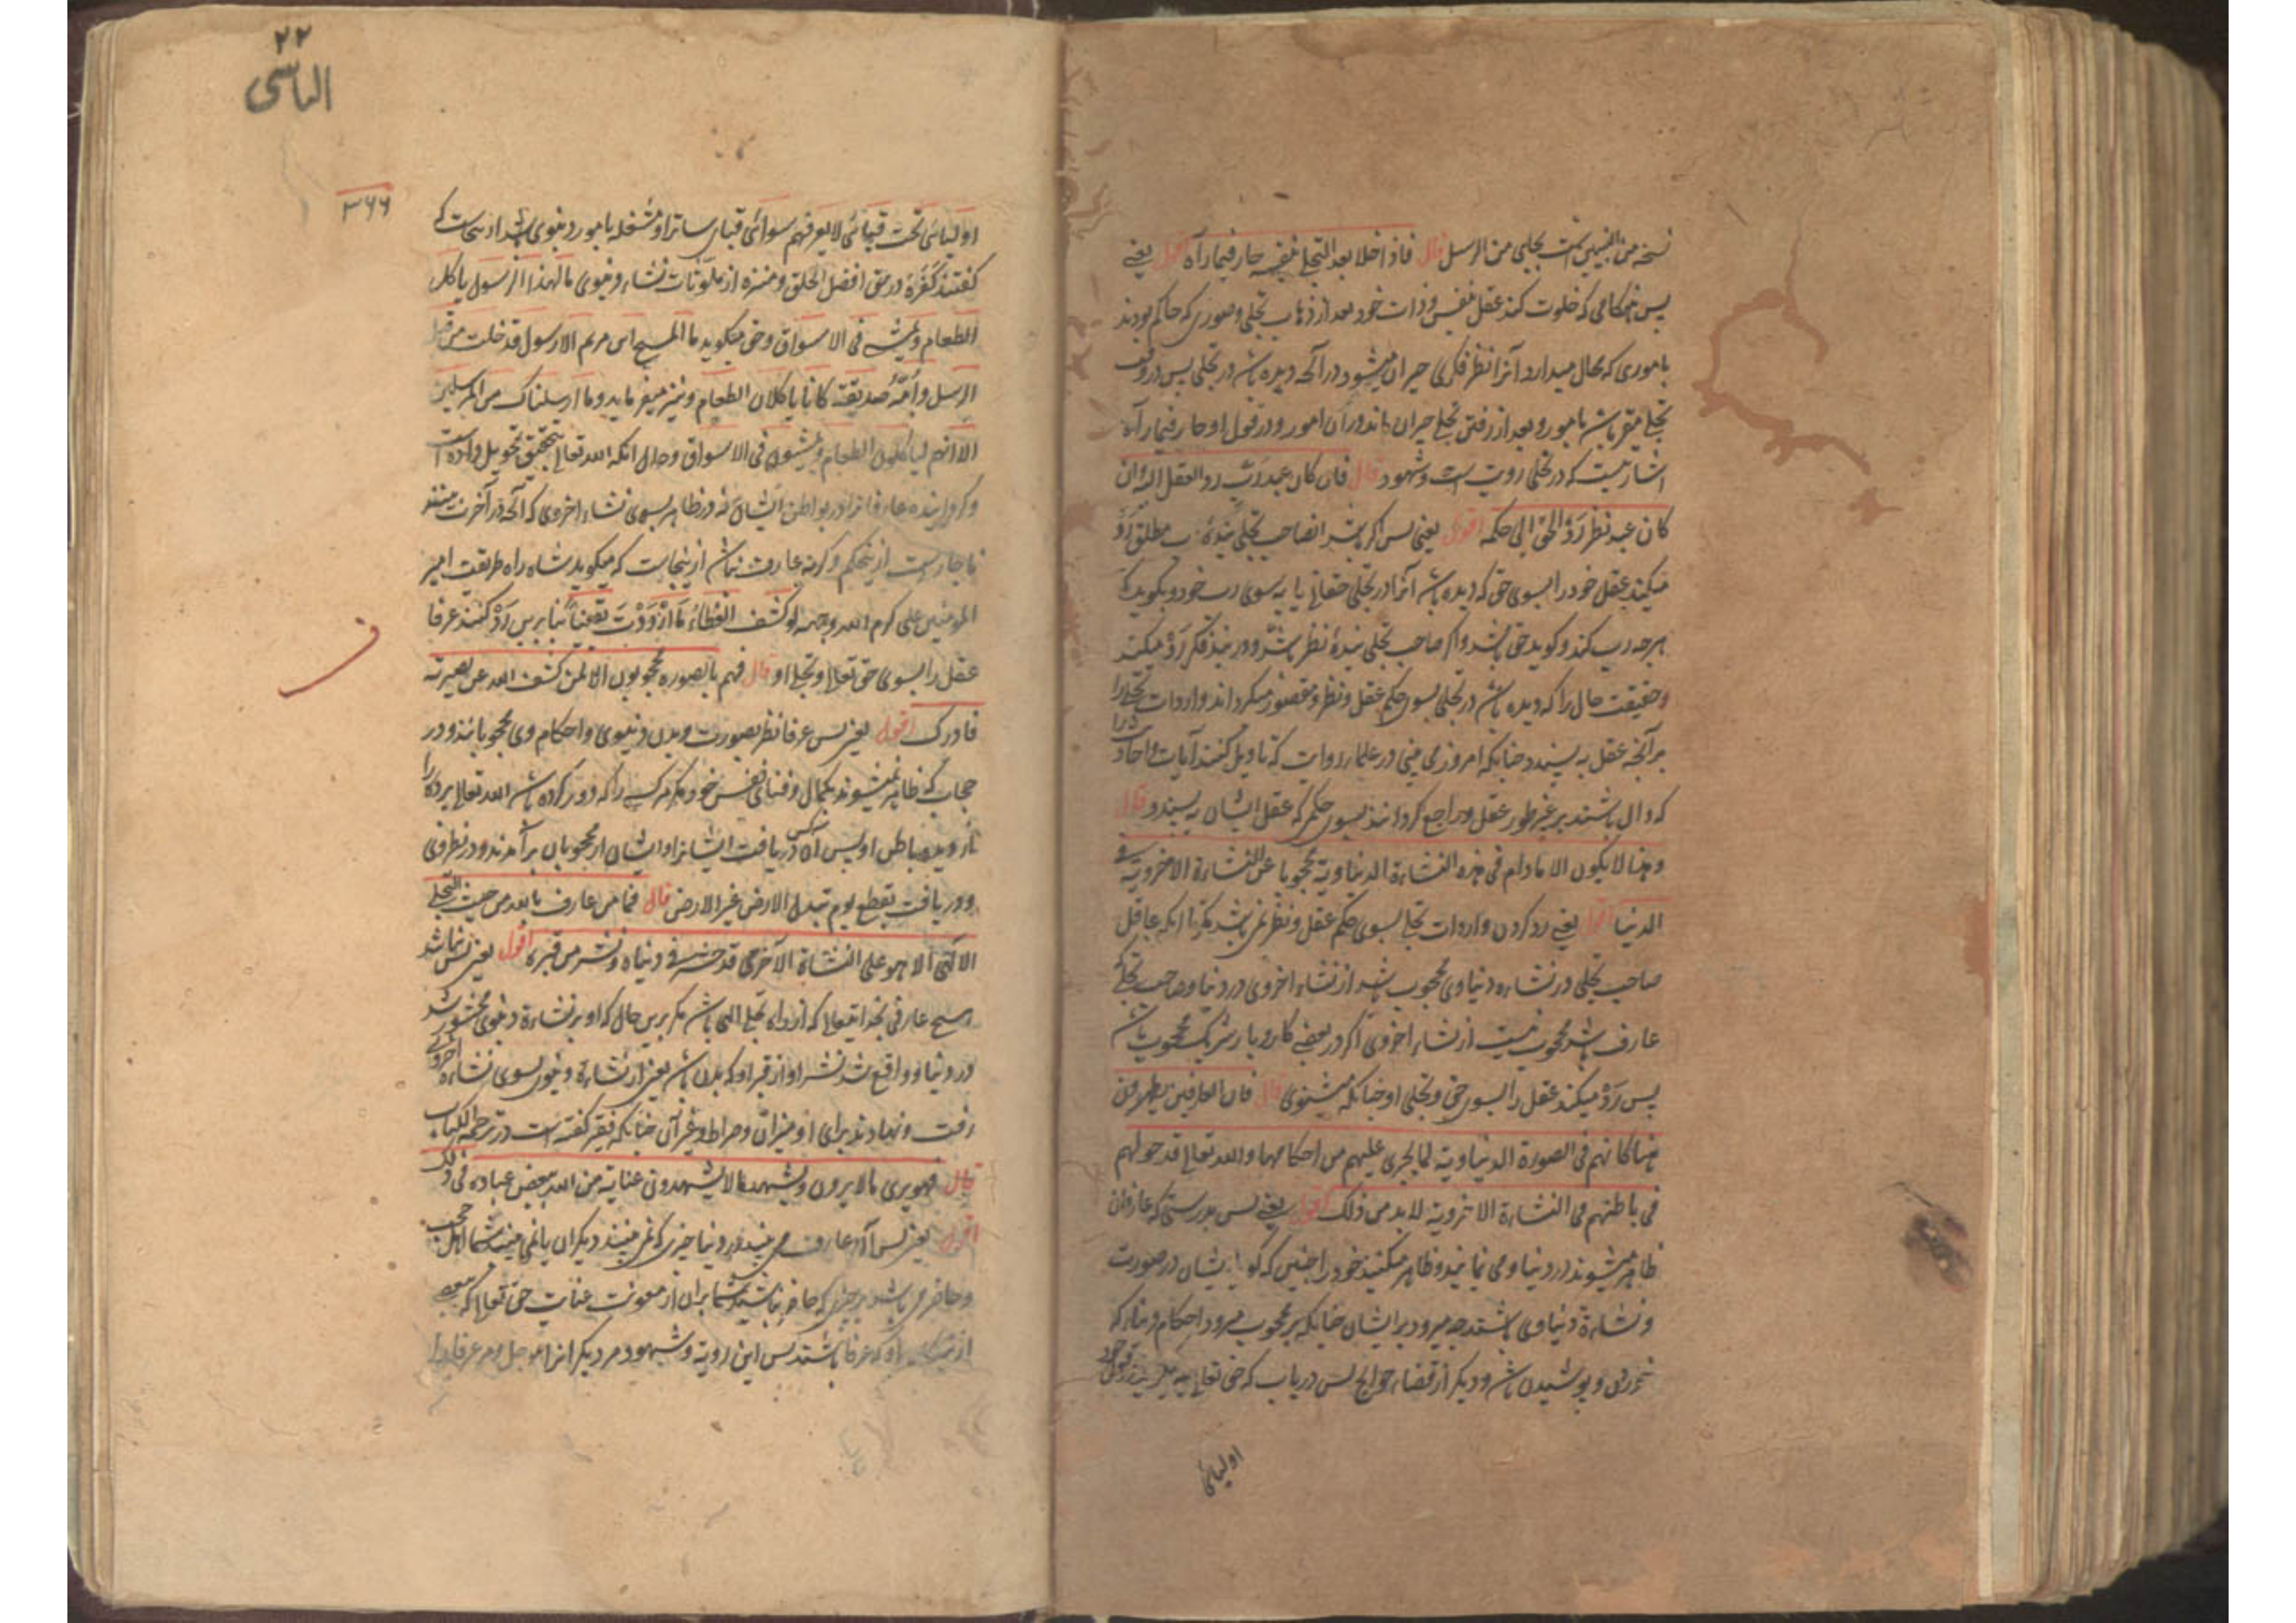 نسخه من است تجلی من الرسل قال فاذا خلا بعد التجلی بنفسه حار فیما رآه اقول یعنی
پس هنگامی که خلوت کند عقل بنفس و ذات خود بعد از ذهاب تجلی و صوری که حاکم بودند
باموری که محال میدارد آنرا نظر فکری حیران میشود در آنچه دیده باشد در تجلی پس در وقت
تجلی متقر باشد بامور و بعد از رفتن تجلی حیران ماند در آن امور و در قول او حار فیما رآه
اشارتیست که در تجلی رویت است و شهود قال فان کان عبد رب رد العقل الیه و ان
کان عبد نظر رد الحق الی حکمه اقول یعنی پس اگر باشد انصاحب تجلی بنده رب مطلق رد
میکند عقل خود را بسوی حق که دیده باشد آنرا در تجلی حقانی یا به سوی رب خود و بگوید که
هرچه رب کند و گوید حق باشد و اگر صاحب تجلی بندهٔ نظر باشد و در بند فکر رد میکند
و حقیقت حال را که دیده باشد در تجلی بسوی حکم عقل و نظر و مقصور میگرداند واردات تجلی را
بر آنچه عقل به پسندد چنانکه امروز می بینی در علماء روایت که تاویل کنند آیات و احادیث را
که دال باشند بر غیر طور عقل و راجع گردانند بسوی حکمی که عقل ایشان به پسندد قال
و هذا لا یکون الا ما دام فی هذه النشاءة الدنیاویة محجوبا عن النشاءة الاخرویة فی
الدنیا اقول یعنی رد کردن واردات تجلی بسوی حکم عقل و نظر نمی باشد مگر تا آنکه عاقل
صاحب تجلی در نشاءه دنیاوی محجوب باشد از نشاء اخروی در دنیا و صاحب تجلی که
عارف باشد محجوب نیست از نشاء اخروی اگر در بعضی کاروبار شریک محجوب باشد
پس رد میکند عقل را بسوی حق و تجلی او چنانکه میشنوی قال فان العارفین یظهرون
هنا کانهم فی الصورة الدنیاویة لما یجری علیهم من احکامها والله تعالی قد حولهم
فی باطنهم فی النشاءة الاخرویة لا بد من ذلک اقول یعنی پس بدرستی که عارفان
ظاهر میشوند در دنیا و می نمایند و ظاهر میکنند خود را چنین که گویا ایشان در صورت
و نشاءة دنیاوی باشند چه میرود بر ایشان چنانکه بر محجوب میرود احکام دنیا که
خوردن و پوشیدن باشد و دیگر از قضاء حوایج پس دریاب که حق تعالی میفرماید در قول خود
اولیائی
۲۲
الیاسی
۳۶۶
اولیائی تحت قبائی لا یعرفهم سوائی قبای ساتر او مشغله بامور دنیوی باشد از ینجاست که
گفتند کفره در حق افضل الخلق و منزه از ملوثات نشاء دنیوی ما لهذا الرسول یاکل
الطعام و یمشی فی الاسواق و حق میگوید ما المسیح ابن مریم الا رسول قد خلت من قبله
الرسل و امه صدیقة کانا یاکلان الطعام و نیز میفرماید و ما ارسلناک من المرسلین
الا انهم لیاکلون الطعام و یمشون فی الاسواق و حال انکه الله تعالی بتحقیق تحویل داده است
و گردانیده عارفانرا در بواطن ایشان نه در ظاهر بسوی نشاء اخروی که آنچه در آخرت بینند
ناچاریست ازینحکم و گرنه عارف نباشد ازینجاست که میگوید شاه راه طریقت امیر
المومنین علی کرم الله وجهه لو کشف الغطاء ما ازددت یقینا بنا برین رد کنند عرفا
عقل را بسوی حق تعالی و تجلی او قال فهم بالصورة محجوبون الا لمن کشف الله عن بصیرته
فادرک اقول یعنی پس عرفا نظر بصورت و بدن دنیوی و احکام وی محجوبانند و در
حجاب که ظاهر نمیشوند بکمال و فنای نفس خود مگر مر کسی را که دور کرده باشد الله تعالی پرده را
از دیده باطن او پس آن کس دریافت ایشانرا و ایشان از محجوبان برآمدند و در نظر وی
و دریافت بقطع یوم تبدل الارض غیر الارض قال فما من عارف بالله من حیث التجلی
الالهی الا و هو علی النشاة الآخرة قد حشر فی دنیاه و نشر من قبره اقول یعنی پس نباشد
هیچ عارفی بخدایتعالی که از راه تجلی الهی باشد مگر برین حال که او بر نشاءة دنیوی محشور شد
در دنیا و واقع شد نشر او از قبر او که بدن باشد یعنی از نشاءة دنیوی بسوی نشاءه اخروی
رفت و نهادند برای او میزان و صراط و غیر آن چنانکه فقیر گفته است در ترجمة الکتاب
قال فهو یری ما لا یرون و یشهد ما لا یشهدون عنایة من الله ببعض عباده فی ذلک
اقول یعنی پس آن عارف می بیند در دنیا چیزی که نمی بینند دیگران یا نمی بینید شما اهل حجب
و حاضر می باشد بر چیزی که حاضر نباشید شما بران از معونت عنایت حق تعالی که ببعضی
از بندگان او که عرفا باشند پس این رویة و شهود مر دیگرانرا موجل و مر عرفا را